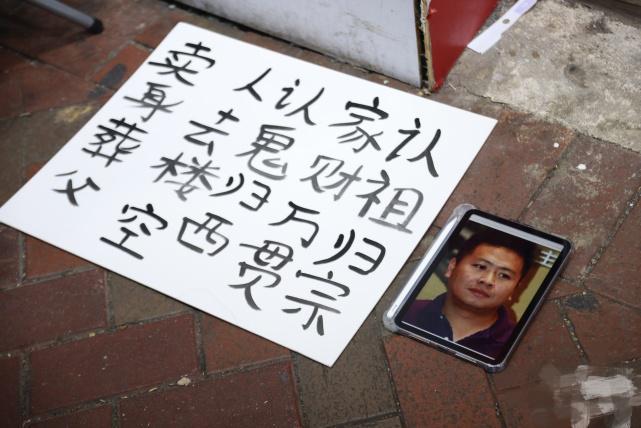 认祖归宗
家财万贯
认鬼归西
人去楼空
卖身葬父
主